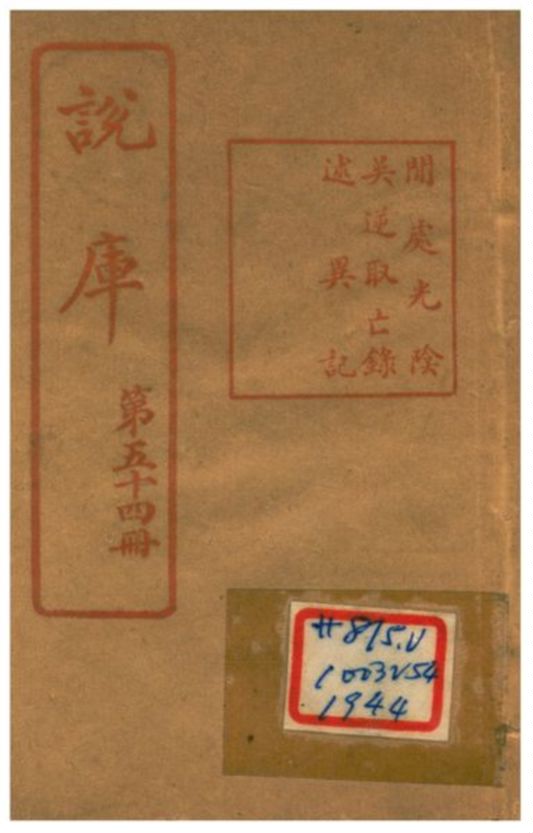 說庫
第五十四冊
閒處光陰
吳逆取亡錄
述異記
#875.V
1003V54
1944